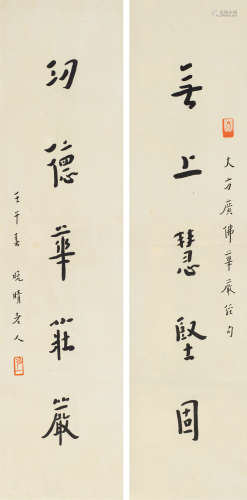 大方廣佛華嚴經句
無上慧堅固
功德華莊嚴
壬午春 晚晴老人